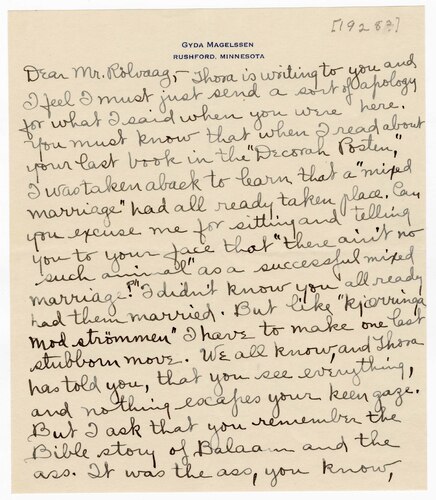 [1928?]
GYDA MAGELSSEN
RUSHFORD, MINNESOTA
Dear Mr. Rölvaag,- Thora is writing to you and
I feel I must just send a sort of apology
for what I said when you were here.
You must know that when I read about
your last book in the "Decorah Posten,"
I was taken aback to learn that a "mixed
marriage" had all ready taken place. Can
you excuse me for sitting and telling
you to your face that "there ain't no
such animal" as a successful mixed
marriage?" I didn't know you all ready
had them married. But like "kjærringa
mod strömmen" I have to make one last
stubborn move. We all know, and Thora
has told you, that you see everything,
and nothing escapes your keen gaze.
But I ask that you remember the
Bible story of Balaam and the
ass. It was the ass, you know,